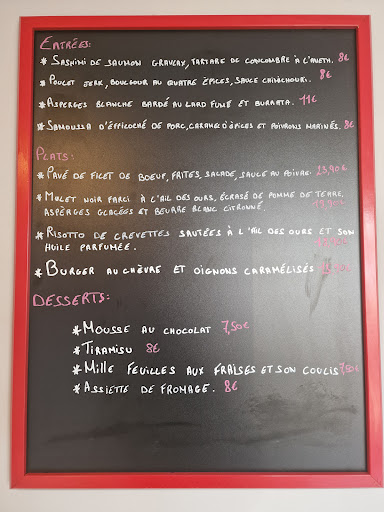 ENTRÉES:
* SASHIMI DE SAUMON GRAVLAX, TARTARE DE CONCOMBRE À L'ANETH. 8€
* POULET JERK, BOULGOUR AU QUATRE ÉPICES, SAUCE CHIMICHOURI. 8€
* ASPERGES BLANCHE BARDÉ AU LARD FUMÉ ET BURRATA. 11€
* SAMOUSSA D'EFFILOCHÉ DE PORC, CARAMEL D'ÉPICES ET POIVRONS MARINÉS. 8€
PLATS:
* PAVÉ DE FILET DE BOEUF, FRITES, SALADE, SAUCE AU POIVRE 23,90€
* MULET NOIR FARCI À L'AIL DES OURS, ÉCRASÉ DE POMME DE TERRE,
ASPERGES GLACÉES ET BEURRE BLANC CITRONNÉ,
* RISOTTO DE CREVETTES SAUTÉES À L'AIL DES OURS ET SON
HUILE PARFUMÉE.
* BURGER AU CHÈVRE ET OIGNONS CARAMÉLISÉS
DESSERTS:
* MOUSSE AU CHOCOLAT 7,50€
* TIRAMISU 8€
* MILLE FEUILLES AUX FRAISES ET SON COULIS 7,50€
* ASSIETTE DE FROMAGE. 8€